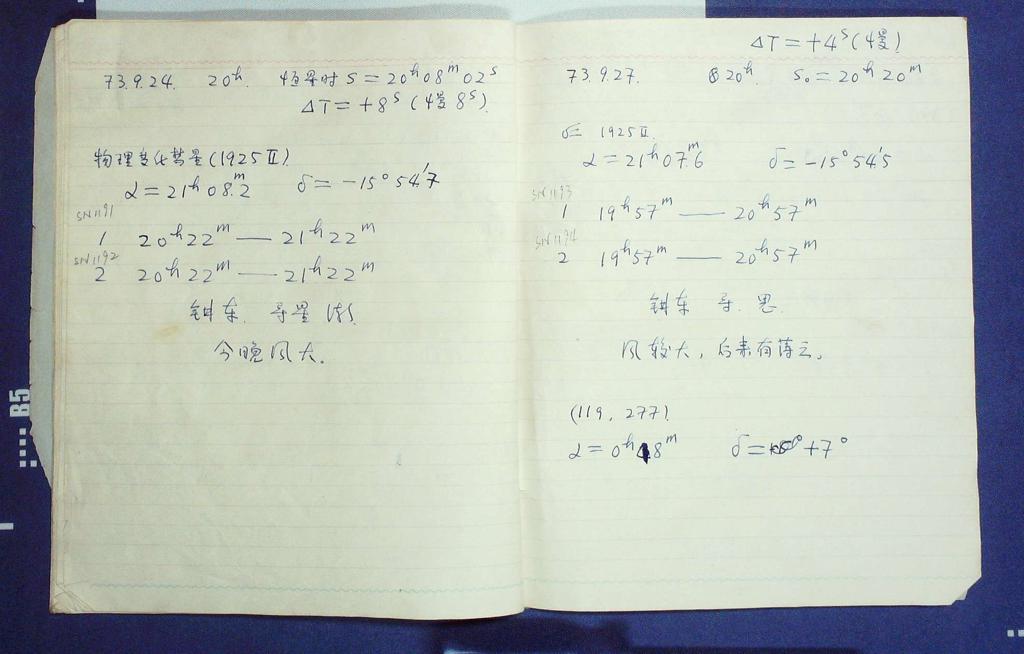 73.9.24. 20ʰ 恒星时 S = 20ʰ08ᵐ02ˢ
ΔT = +8ˢ (慢8ˢ)
物理变化彗星(1925Ⅱ)
α = 21ʰ08ᵐ.2 δ = -15°54'.7
SN1191
1 20ʰ22ᵐ — 21ʰ22ᵐ
SN1192
2 20ʰ22ᵐ — 21ʰ22ᵐ
导星
今晚风大.
ΔT = +4ˢ (慢)
73.9.27. 20ʰ. S₀ = 20ʰ20ᵐ
1925Ⅱ.
α = 21ʰ07ᵐ.6 δ = -15°54'.5
SN1193
1 19ʰ57ᵐ — 20ʰ57ᵐ
SN1194
2 19ʰ57ᵐ — 20ʰ57ᵐ
导.
风较大, 后来有薄云.
(119, 277).
α = 0ʰ48ᵐ δ = +7°
B5